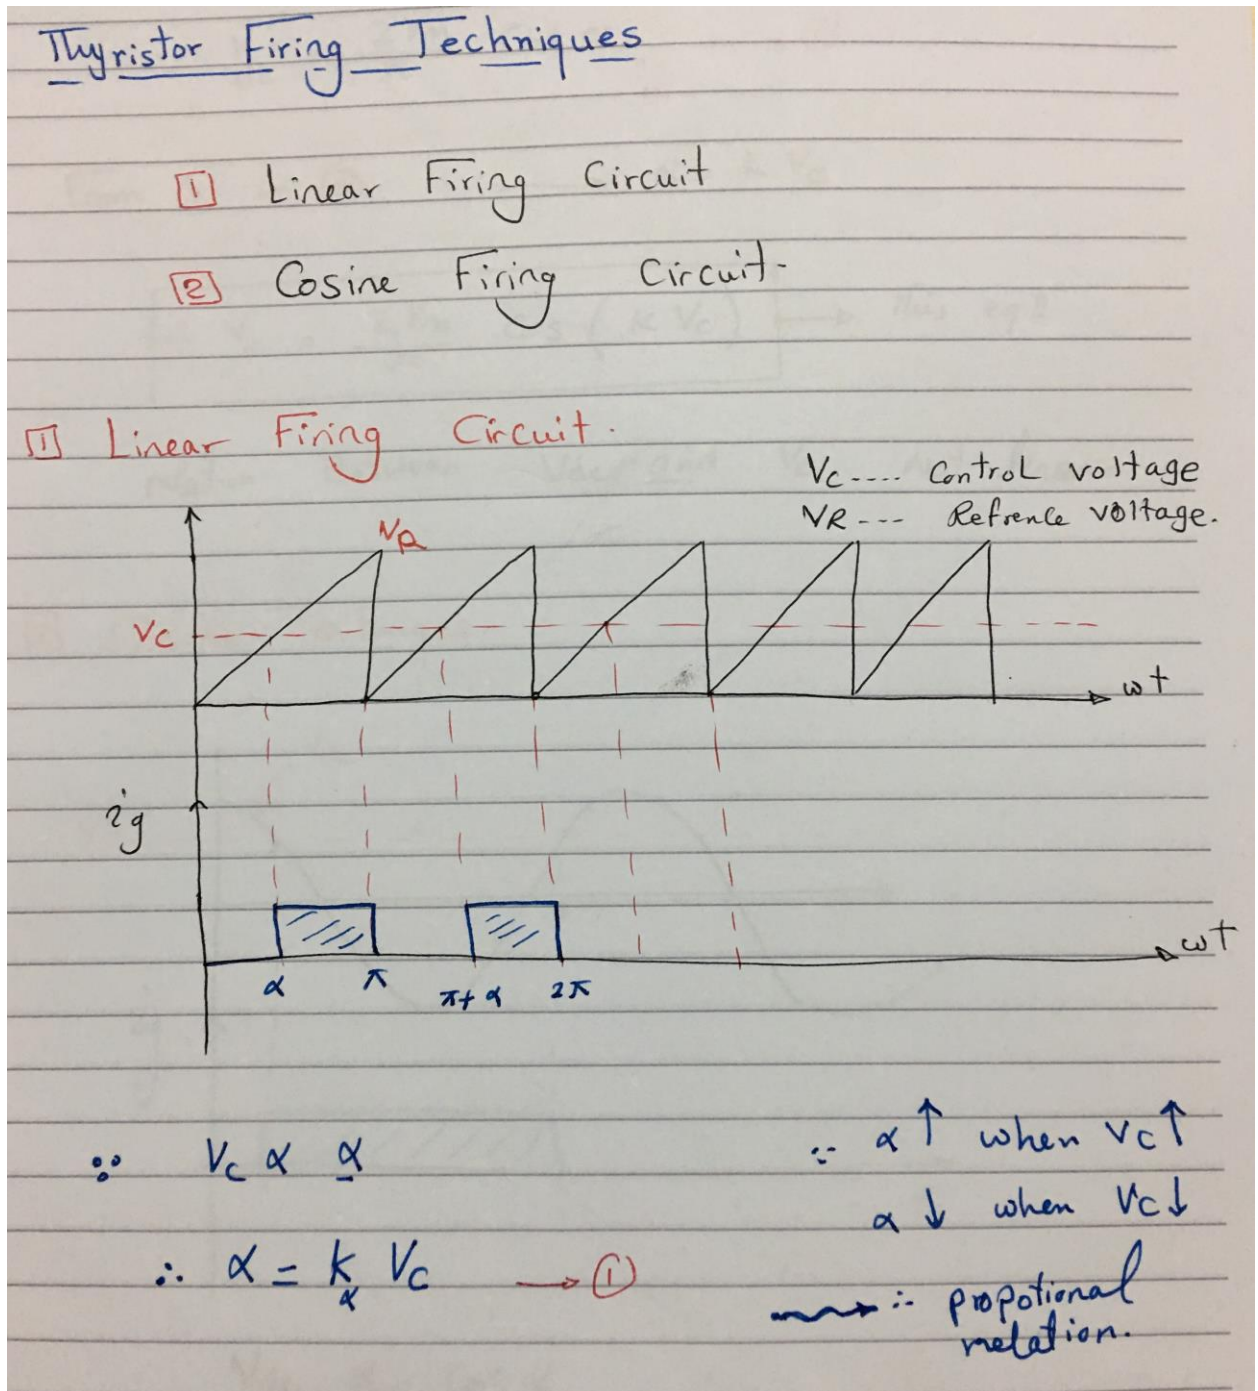 Thyristor Firing Techniques
1 Linear Firing Circuit
2 Cosine Firing Circuit.
1 Linear Firing Circuit.
Vc .... Control voltage
VR --- Refrence voltage.
VR
Vc
ωt
ig
ωt
α π π+α 2π
∵ Vc α α
∵ α ↑ when Vc ↑
α ↓ when Vc ↓
∴ α = kα Vc → 1
∴ propotional
relation.